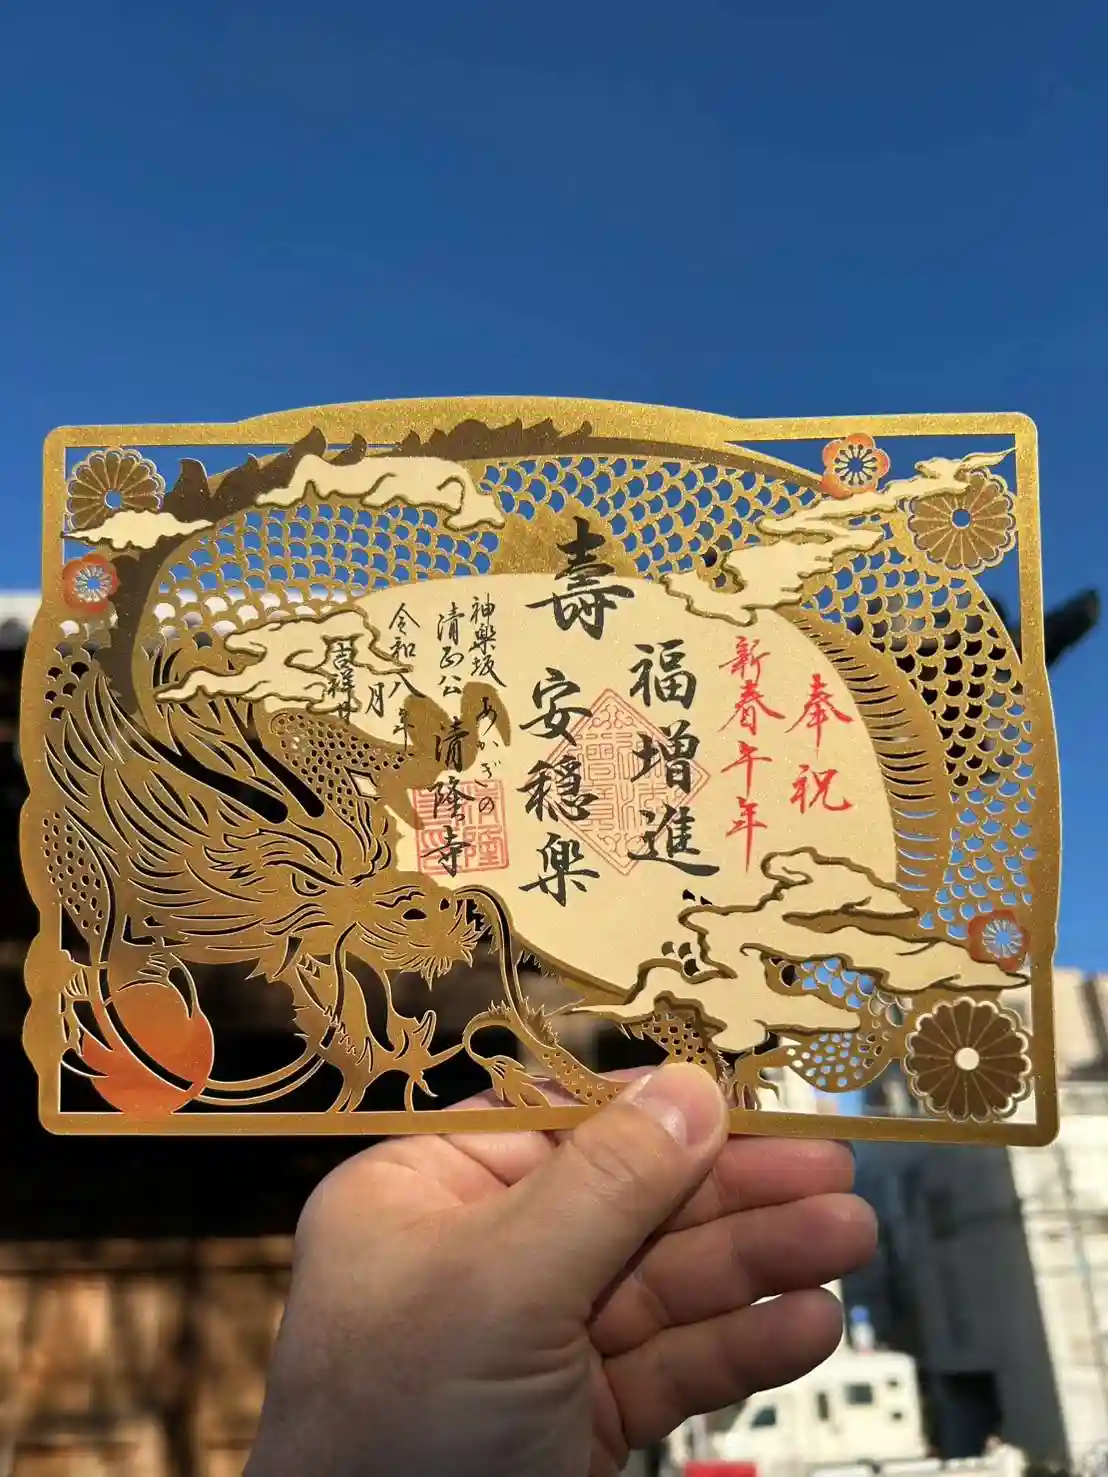 奉祝
新春午年
福増進
壽
安穏楽
神楽坂 あかぎの
清正公 清隆寺
令和八年
月
吉祥日